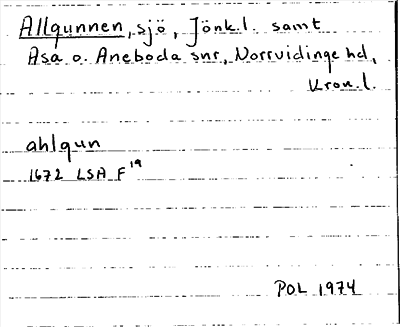 Allgunnen, sjö, Jönk.l. samt
Asa o. Aneboda snr, Norrvidinge hd,
Kron.l.
ahlgun
1672 LSA F19
POL 1974